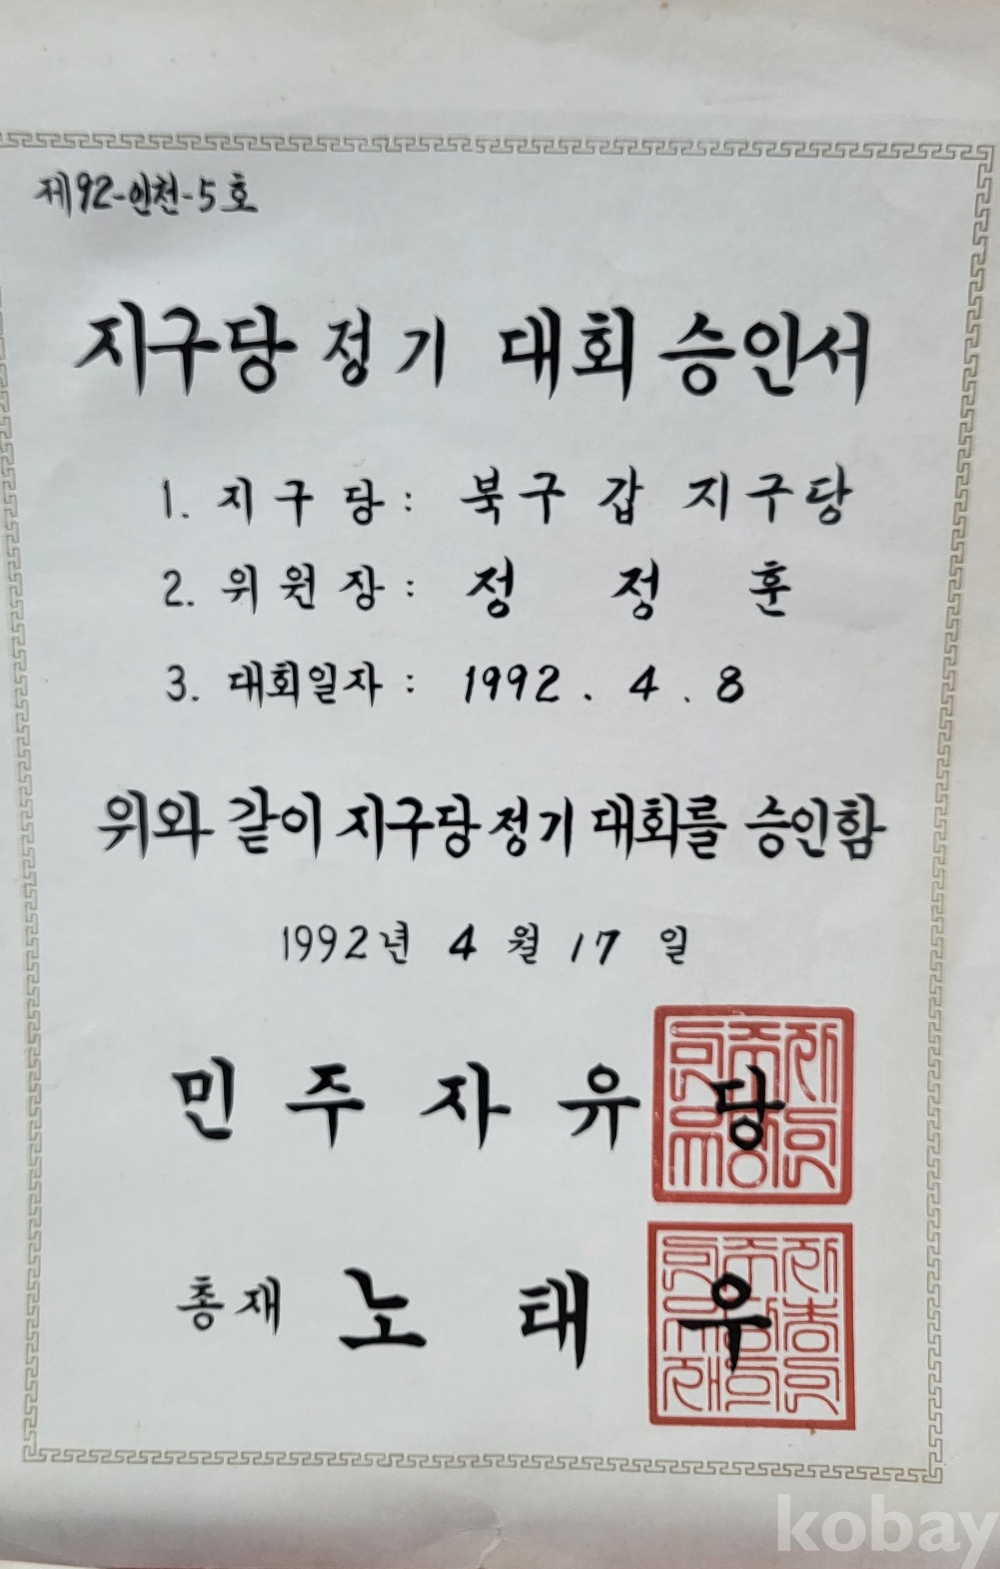 제92-인천-5호
지구당 정기 대회 승인서
1. 지구당 : 북구 갑 지구당
2. 위원장 : 정 정 훈
3. 대회일자 : 1992 . 4 . 8
위와 같이 지구당 정기 대회를 승인함
1992년 4 월 17 일
민 주 자 유 당
총재 노 태 우
kobay